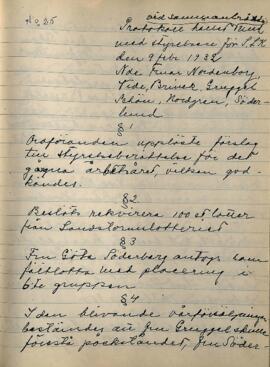 No 25
vid sammanträde
Protokoll hållet
med styrelsen för S.L.K.
den 9 febr 1932
Nde Fruar Nordenborg,
Vide, Briner, Gruggel
Schön, Nordgren, Söder-
lund
§ 1
Ordföranden uppläste förslag
till styrelseberättelse för det
gångna arbetsåret, vilken god-
kändes.
§ 2
Beslöts rekvirera 100 st. lotter
från Landstormslotteriet
§ 3
Fru Göta Söderberg antogs som
förlotta med placering i
6te gruppen
§ 4
I den blivande vårförsäljningen
bestämdes att fru Gruggel skulle
förestå påskståndet, fru Söder-